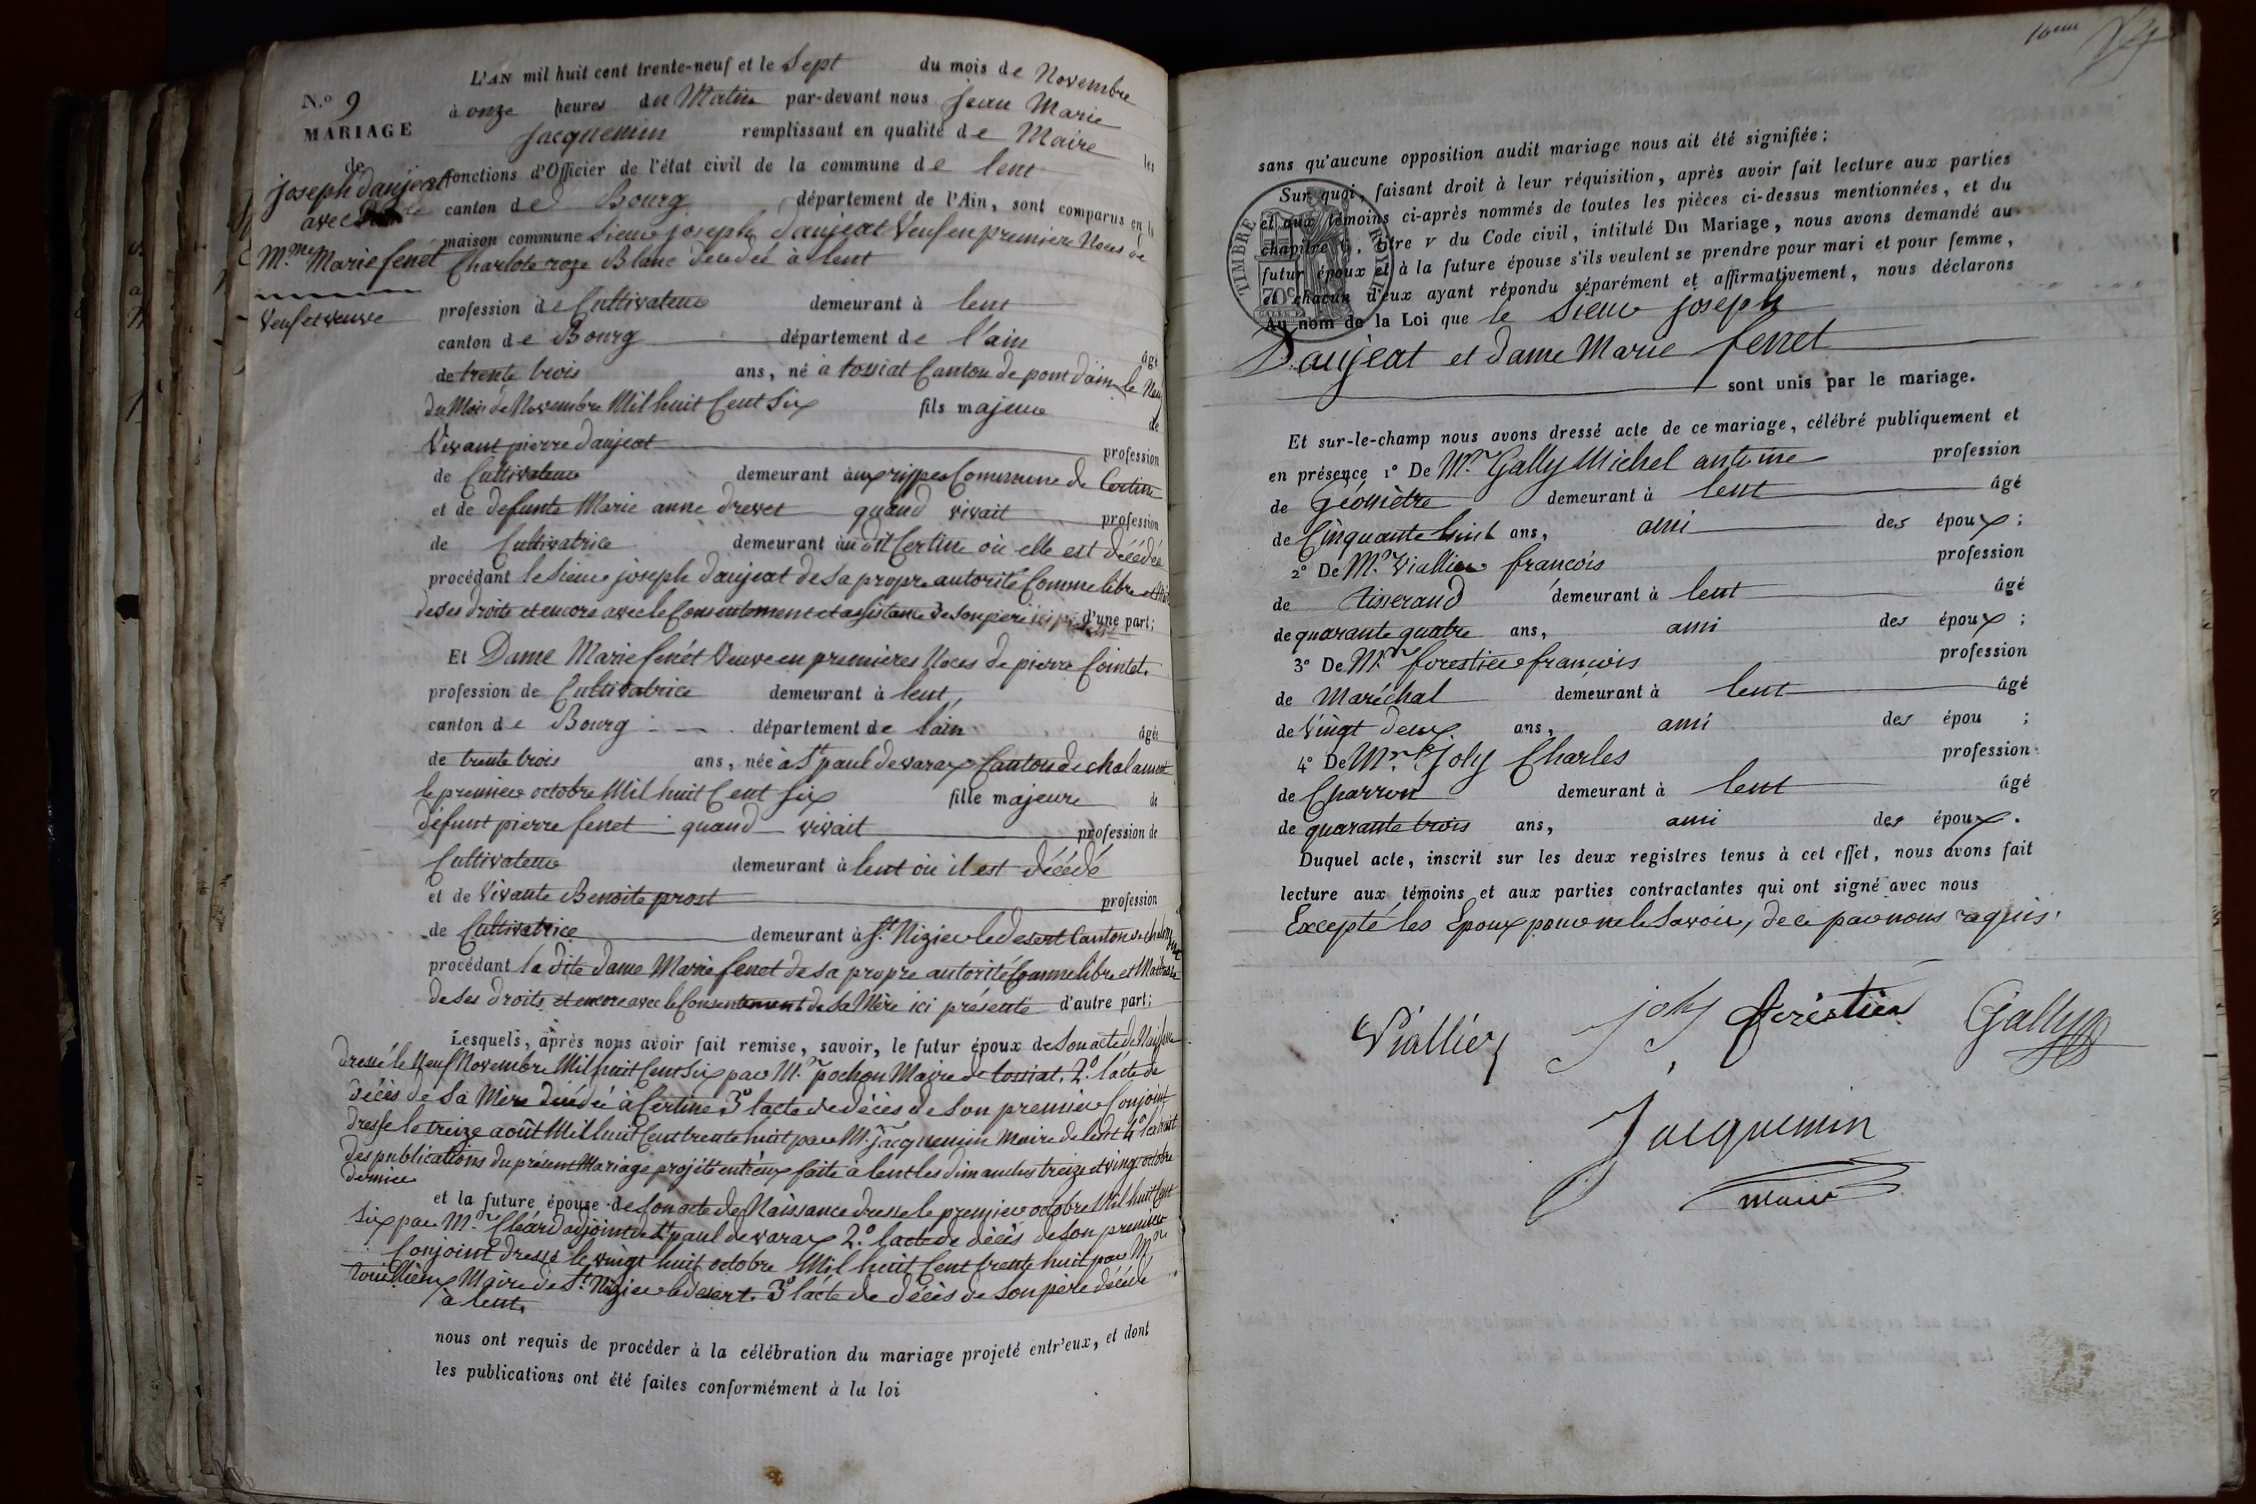 N.º 9
MARIAGE
de
joseph daujeat
avec
M.me Marie fenét
Veuf et veuve
L'AN mil huit cent trente-neuf et le Sept du mois de Novembre
à onze heures du Matin par-devant nous jean Marie
jacquemin remplissant en qualité de Maire les
fonctions d'Officier de l'état civil de la commune de lent
canton de Bourg département de l'Ain, sont comparus en la
maison commune Sieur joseph daujeat Veuf en premiere Noces de
Charlote roze Blanc décédée à lent
profession de Cultivateur demeurant à lent
canton de Bourg département de l'ain âgé
de trente trois ans, né à tossiat Canton de pont d'ain le Neuf
du Mois de Novembre Mil huit Cent Six fils majeur de
Vivant pierre daujeat profession
de Cultivateur demeurant aux rippes Commune de Certine
et de defunte Marie anne drevet quand vivait profession
de Cultivatrice demeurant au dit Certine où elle est décédée
procédant le Sieur joseph daujeat de Sa propre autorité Comme libre et
de Ses droits et encore avec le Consentement et assistance de Son père ici d'une part;
Et Dame Marie fenét Veuve en premieres Noces de pierre Cointet
profession de Cultivatrice demeurant à lent,
canton de Bourg département de l'ain âgée
de trente trois ans, née à St paul de varax Canton de chalamont
le premier octobre Mil huit Cent Six fille majeure de
défunt pierre fenet quand vivait profession de
Cultivateur demeurant à lent où il est décédé
et de Vivante Benoite prost profession
de Cultivatrice demeurant à St. Nizier le desert Canton de chalamont
procédant la dite dame Marie fenet de Sa propre autorité Comme libre et Maitresse
de Ses droits et encore avec le Consentement de Sa Mère ici présente d'autre part;
Lesquels, après nous avoir fait remise, savoir, le futur époux de Son acte de Naissance
dressé le Neuf Novembre Mil huit Cent Six par M.r pochon Maire de tossiat, 2.º l'acte de
décès de Sa Mère décédée à Certine 3º l'acte de décès de Son premier Conjoint
dressé le treize août Mil huit Cent trente huit par M.r jacquemin Maire de lent 4º l'extrait
des publications du présent Mariage projété entr'eux faite à lent les dimanches treize et vingt octobre
dernier
et la future épouse de Son acte de Naissance dressé le premier octobre Mil huit Cent
Six par M.r Cléard adjoint de St paul de varax 2.º l'acte de décès de Son premier
Conjoint dressé le vingt huit octobre Mil huit Cent trente huit par M.r
Maire de St. Nizier le desert. 3º l'acte de décès de Son père décédé
à lent.
nous ont requis de procéder à la célébration du mariage projeté entr'eux, et dont
les publications ont été faites conformément à la loi
sans qu'aucune opposition audit mariage nous ait été signifiée;
Sur quoi, faisant droit à leur réquisition, après avoir fait lecture aux parties
et aux témoins ci-après nommés de toutes les pièces ci-dessus mentionnées, et du
chapitre 6, titre V du Code civil, intitulé Du Mariage, nous avons demandé au
futur époux et à la future épouse s'ils veulent se prendre pour mari et pour femme,
et chacun d'eux ayant répondu séparément et affirmativement, nous déclarons
Au nom de la Loi que le Sieur joseph
Daujeat et dame Marie fenet
sont unis par le mariage.
TIMBRE ROYAL
Et sur-le-champ nous avons dressé acte de ce mariage, célébré publiquement et
en présence 1º De M.r Gally Michel antoine profession
de Géomètre demeurant à lent âgé
de Cinquante huit ans, ami des époux;
2º De M.r Viallier francois profession
de tisserand demeurant à lent âgé
de quarante quatre ans, ami des époux;
3º De M.r forestier francois profession
de Maréchal demeurant à lent âgé
de Vingt deux ans, ami des épou ;
4º De M.r joly Charles profession
de Charron demeurant à lent âgé
de quarante trois ans, ami des époux.
Duquel acte, inscrit sur les deux registres tenus à cet effet, nous avons fait
lecture aux témoins et aux parties contractantes qui ont signé avec nous
Excepté les Epoux pour ne le Savoir, de ce par nous requis.
Viallier joly forestier Gally
Jacquemin
maire